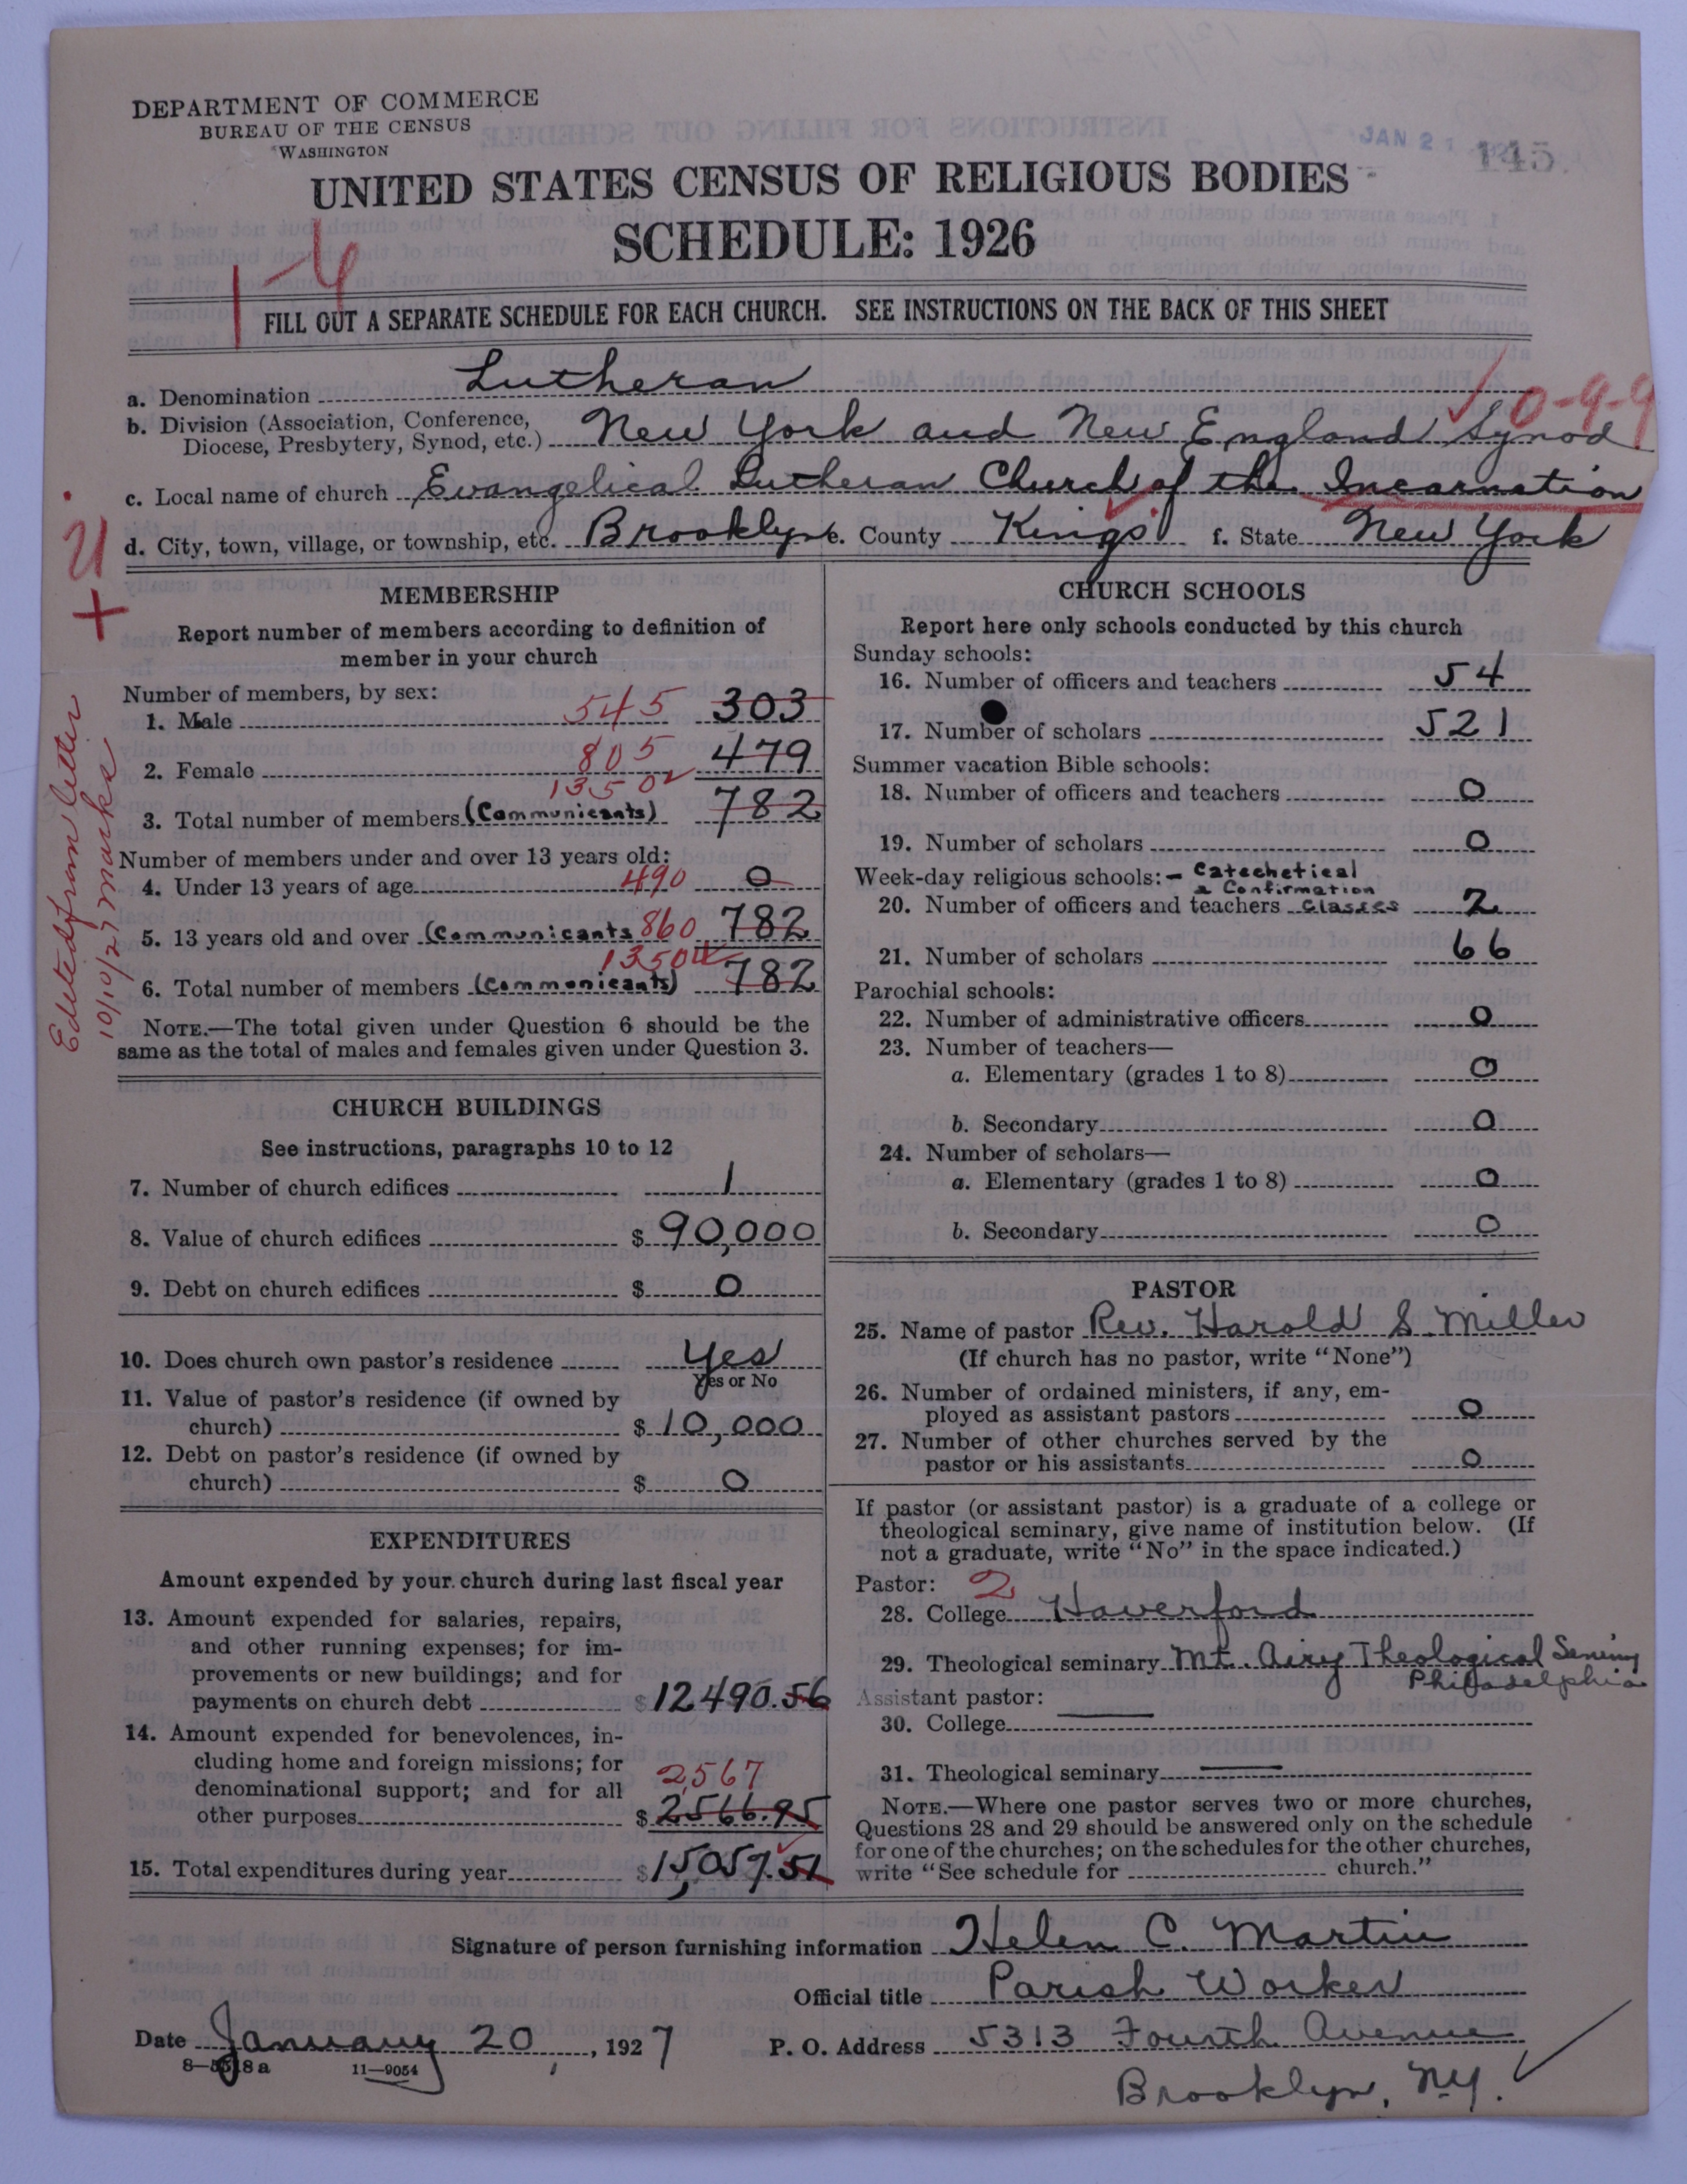 DEPARTMENT OF COMMERCE
BUREAU OF THE CENSUS
WASHINGTON
JAN 21
145
UNITED STATES CENSUS OF RELIGIOUS BODIES
SCHEDULE: 1926
FILL OUT A SEPARATE SCHEDULE FOR EACH CHURCH. SEE INSTRUCTIONS ON THE BACK OF THIS SHEET
a. Denomination Lutheran
0-9-9
b. Division (Association, Conference,
Diocese, Presbytery, Synod, etc.) New York and New England Synod
c. Local name of church Evangelical Lutheran Church of the Incarnation
d. City, town, village, or township, etc. Brooklyn e. County Kings f. State New York
Edited from letter
10/10/27 Marks
MEMBERSHIP
Report number of members according to definition of
member in your church
Number of members, by sex:
1. Male 545 303
2. Female 805 479
1350
3. Total number of members (Communicants) 782
Number of members under and over 13 years old:
4. Under 13 years of age 490 0
5. 13 years old and over (Communicants 860 782
1350
6. Total number of members (Communicants) 782
NOTE.—The total given under Question 6 should be the
same as the total of males and females given under Question 3.
CHURCH BUILDINGS
See instructions, paragraphs 10 to 12
7. Number of church edifices 1
8. Value of church edifices $ 90,000
9. Debt on church edifices $ 0
10. Does church own pastor's residence Yes
Yes or No
11. Value of pastor's residence (if owned by
church) $ 10,000
12. Debt on pastor's residence (if owned by
church) $ 0
EXPENDITURES
Amount expended by your church during last fiscal year
13. Amount expended for salaries, repairs,
and other running expenses; for im-
provements or new buildings; and for
payments on church debt $ 12490.56
14. Amount expended for benevolences, in-
cluding home and foreign missions; for
denominational support; and for all
2567
other purposes $ 2566.95
15. Total expenditures during year $ 15,057.51
CHURCH SCHOOLS
Report here only schools conducted by this church
Sunday schools:
16. Number of officers and teachers 54
17. Number of scholars 521
Summer vacation Bible schools:
18. Number of officers and teachers 0
19. Number of scholars 0
Week-day religious schools:- Catechetical
& Confirmation
20. Number of officers and teachers Classes 2
21. Number of scholars 66
Parochial schools:
22. Number of administrative officers 0
23. Number of teachers—
a. Elementary (grades 1 to 8) 0
b. Secondary 0
24. Number of scholars—
a. Elementary (grades 1 to 8) 0
b. Secondary 0
PASTOR
25. Name of pastor Rev. Harold S. Miller
(If church has no pastor, write "None")
26. Number of ordained ministers, if any, em-
ployed as assistant pastors 0
27. Number of other churches served by the
pastor or his assistants 0
If pastor (or assistant pastor) is a graduate of a college or
theological seminary, give name of institution below. (If
not a graduate, write "No" in the space indicated.)
Pastor: 2
28. College Haverford
29. Theological seminary Mt. Airy Theological
Philadelphia
Assistant pastor:
30. College
31. Theological seminary
NOTE.—Where one pastor serves two or more churches,
Questions 28 and 29 should be answered only on the schedule
for one of the churches; on the schedules for the other churches,
write "See schedule for church."
Signature of person furnishing information Helen C. Martin
Official title Parish Worker
Date January 20, 1927 P. O. Address 5313 Fourth Avenue
8—5518 a 11—9054
Brooklyn, N.Y.